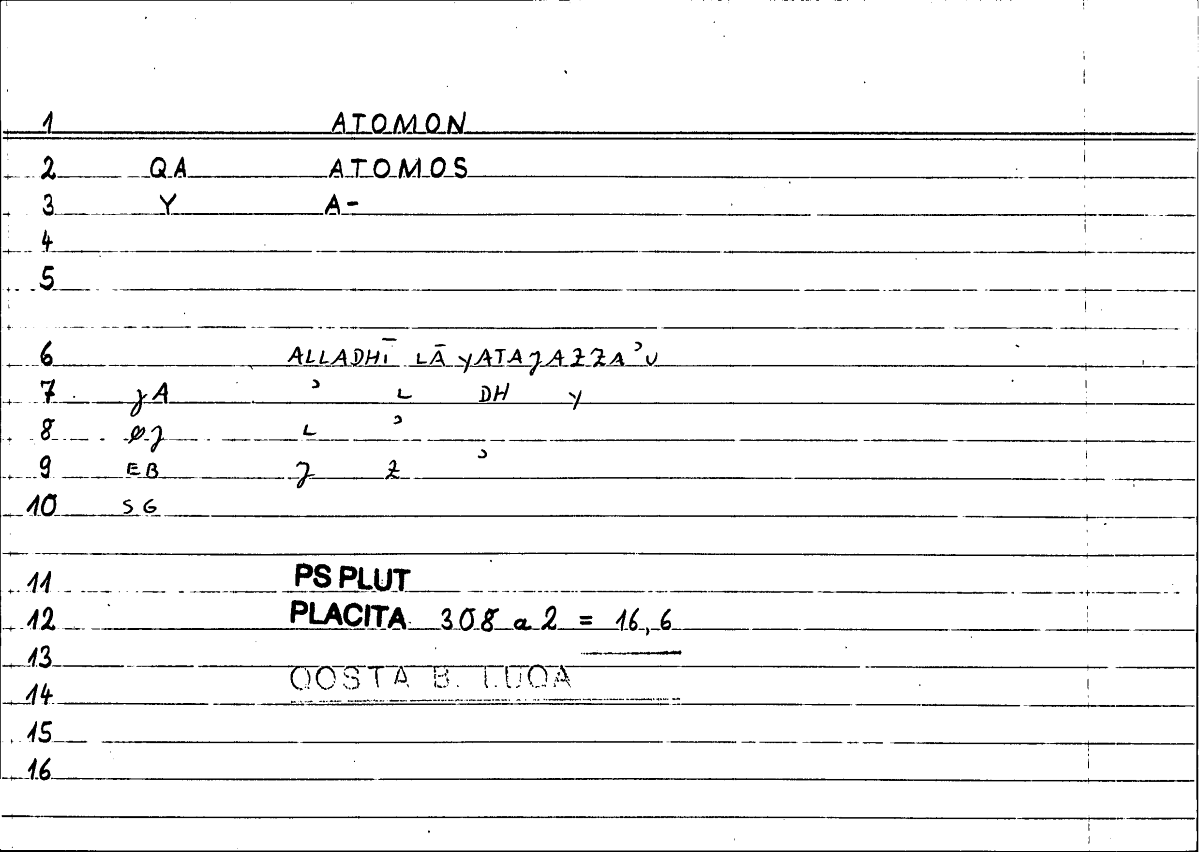 1 ATOMON
2 QA ATOMOS
3 Y A-
4
5
6 ALLADHĪ LĀ YATAJAZZAʾU
7 JA ʾ L DH Y
8 ØJ L ʾ
9 EB J Z ʾ
10 SG
11 PS PLUT
12 PLACITA 308 a 2 = 16,6
13
QOSTA B. LUQA
14
15
16